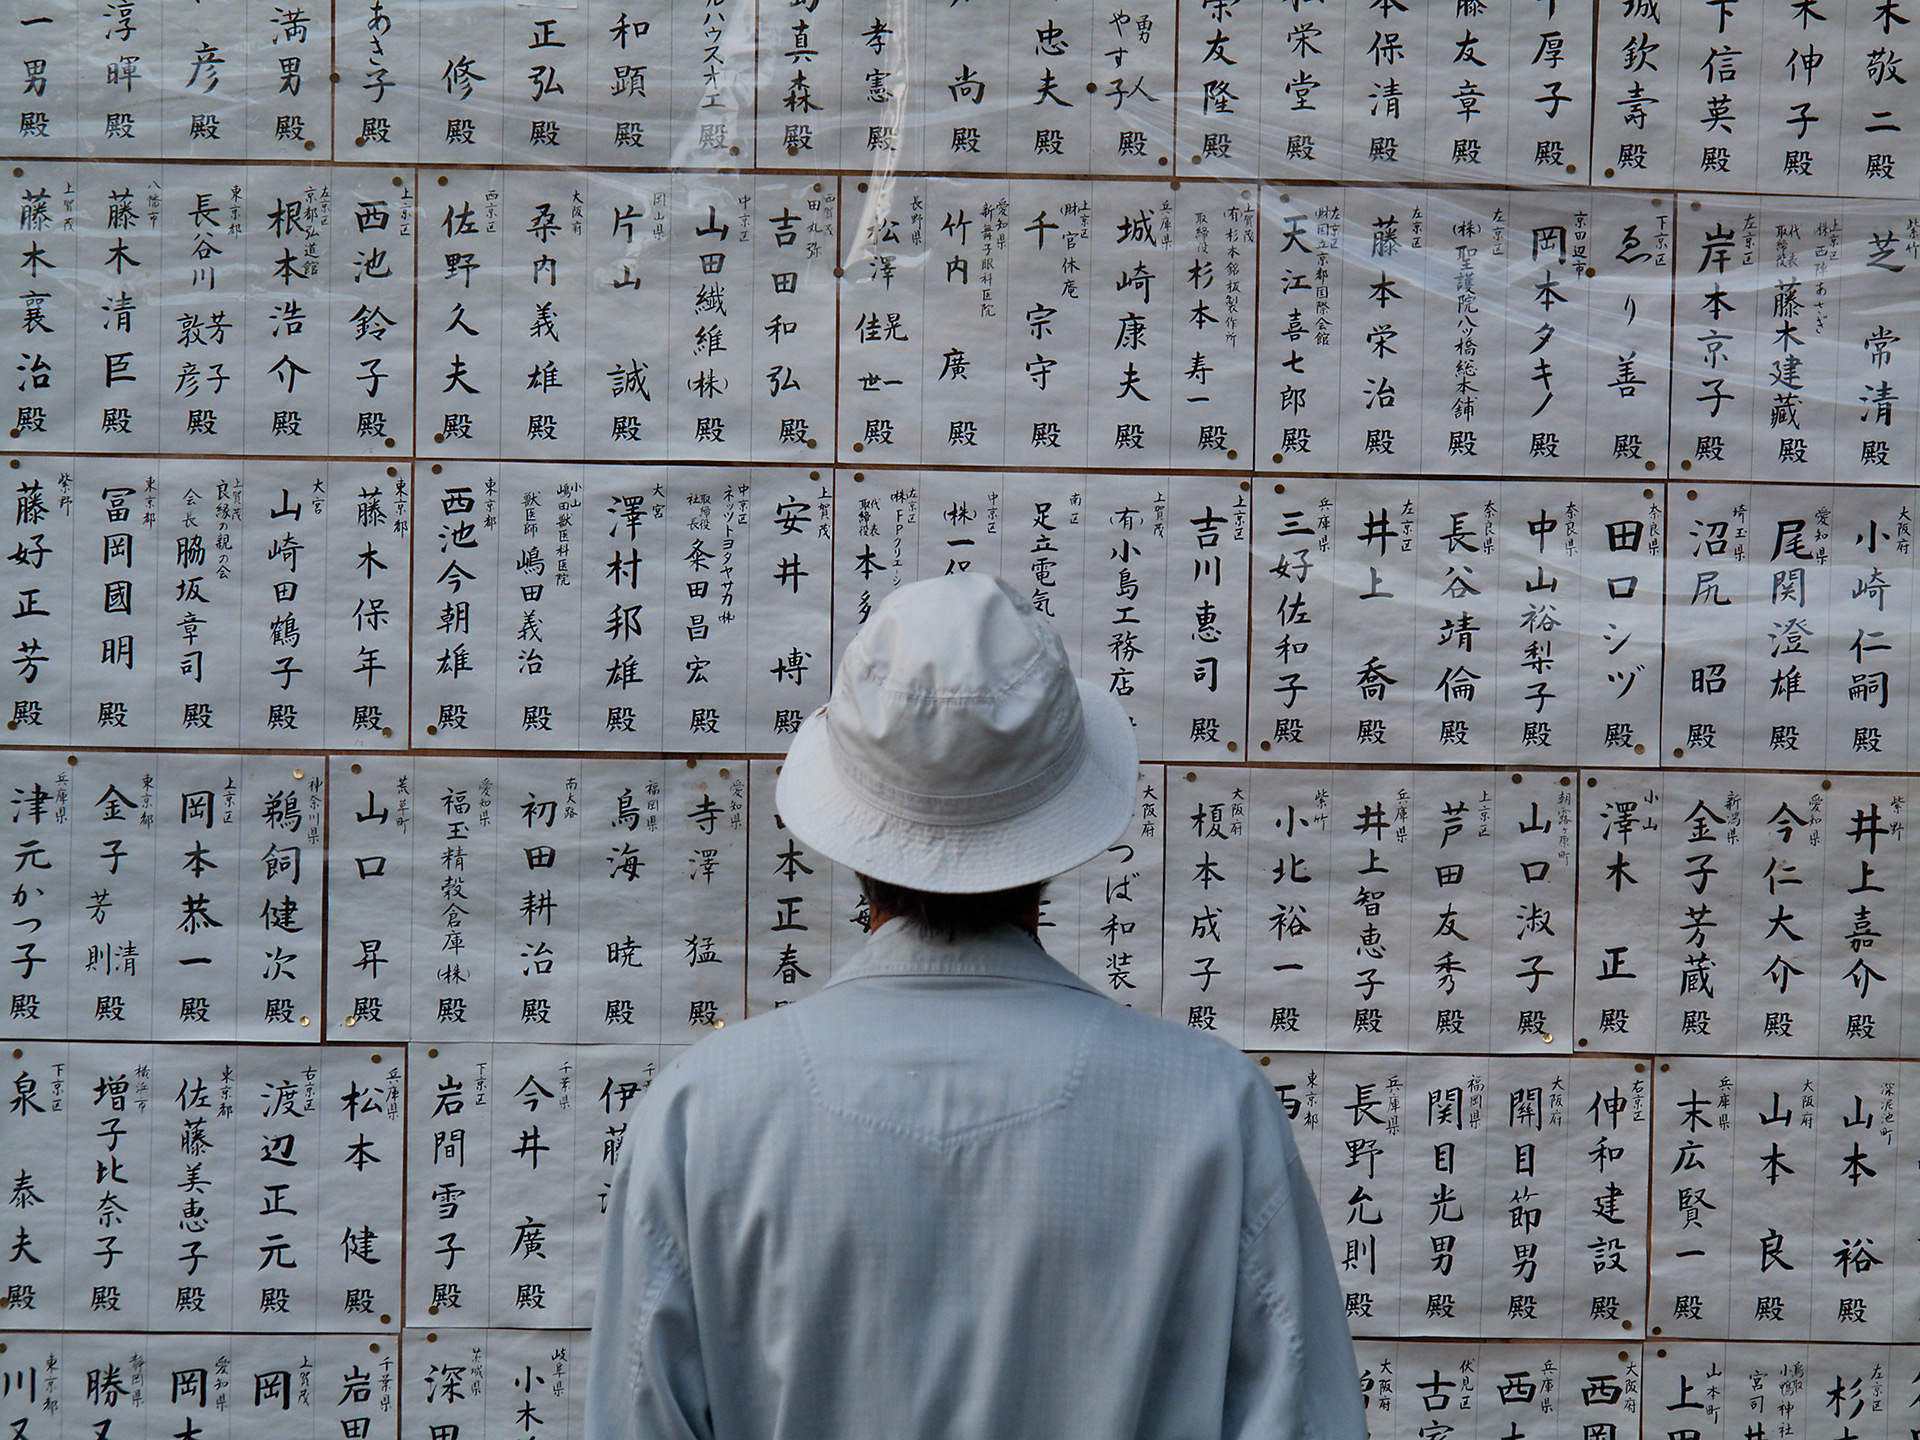 敬二殿
伸子殿
下信英殿
城欽壽殿
厚子殿
藤友章殿
本保清殿
栄堂殿
栄友隆殿
勇人 やす子殿
忠夫殿
尚殿
孝憲殿
島真森殿
ルハウスオエ殿
和顕殿
正弘殿
修殿
あさ子殿
満男殿
彦殿
淳暉殿
一男殿
紫竹 芝常清殿
上京区 (株)西陣あさぎ 代表取締役 藤木建藏殿
左京区 岸本京子殿
下京区 ゑり善殿
京田辺市 岡本タキノ殿
左京区 (株)聖護院八ッ橋総本舗殿
左京区 藤本栄治殿
左京区 (財)国立京都国際会館 天江喜七郎殿
上賀茂 (有)杉本銘板製作所 取締役 杉本寿一殿
兵庫県 城崎康夫殿
上京区 (財)官休庵 千宗守殿
愛知県 新舞子眼科医院 竹内廣殿
長野県 松澤晃一 佳世殿
西賀茂 田丸弥 吉田和弘殿
中京区 山田繊維(株)殿
岡山県 片山誠殿
大阪府 桑内義雄殿
西京区 佐野久夫殿
上京区 西池鈴子殿
左京区 京都弘道館 根本浩介殿
東京都 長谷川芳子 敦彦殿
八幡市 藤木清臣殿
上賀茂 藤木襄治殿
大阪府 小崎仁嗣殿
愛知県 尾関澄雄殿
埼玉県 沼尻昭殿
奈良県 田口シヅ殿
奈良県 中山裕梨子殿
奈良県 長谷靖倫殿
左京区 井上喬殿
兵庫県 三好佐和子殿
上京区 吉川恵司殿
上賀茂 (有)小島工務店
南区 足立電気
中京区 (株)一保
左京区 (株)FPクリエーシ 代表取締役 本多
上賀茂 安井博殿
中京区 ネッツトヨタヤサカ(株) 取締役社長 粂田昌宏殿
大宮 澤村邦雄殿
小山 嶋田獣医科医院 獣医師 嶋田義治殿
東京都 西池今朝雄殿
東京都 藤木保年殿
大宮 山崎田鶴子殿
上賀茂 良縁の親の会 会長 脇坂章司殿
東京都 冨岡國明殿
紫野 藤好正芳殿
紫野 井上嘉介殿
愛知県 今仁大介殿
新潟県 金子芳蔵殿
小山 澤木正殿
朝露ヶ原町 山口淑子殿
上京区 芦田友秀殿
兵庫県 井上智恵子殿
紫竹 小北裕一殿
大阪府 榎本成子殿
大阪府 つば和装
本正春
愛知県 寺澤猛殿
福岡県 鳥海暁殿
南大路 初田耕治殿
愛知県 福玉精穀倉庫(株)殿
荒草町 山口昇殿
神奈川県 鵜飼健次殿
上京区 岡本恭一殿
東京都 金子芳清 則殿
兵庫県 津元かつ子殿
深泥池町 山本裕殿
大阪府 山本良殿
兵庫県 末広賢一殿
右京区 伸和建設殿
大阪府 關目節男殿
福岡県 関目光男殿
兵庫県 長野允則殿
東京都 西
千葉県 伊藤
千葉県 今井廣殿
下京区 岩間雪子殿
兵庫県 松本健殿
右京区 渡辺正元殿
東京都 佐藤美恵子殿
横浜市 増子比奈子殿
下京区 泉泰夫殿
左京区 杉
鳥取 小鴨神社 宮司
山本町 上田
大阪府 西岡
兵庫県 西
伏見区 古家
大阪府
岐阜県 小木
茨城県 深田
千葉県 岩田
上賀茂 岡
愛知県 岡本
静岡県 勝又
東京都 川又